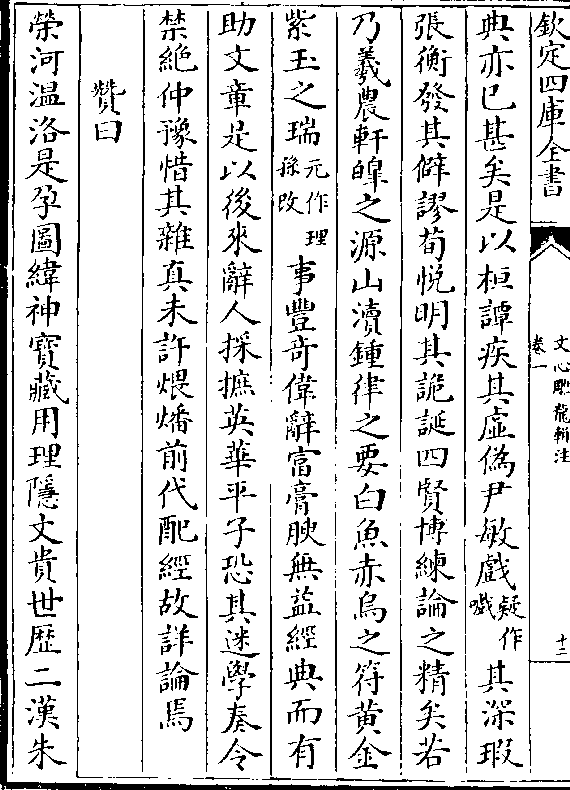 欽定四庫全書
文心雕龍輯注
卷一
十二
典亦已甚矣是以桓譚疾其虛偽尹敏戲疑作嘅其深瑕
張衡發其僻謬荀悅明其詭誕四賢博練論之精矣若
乃羲農軒皥之源山瀆鍾律之要白魚赤烏之符黃金
紫玉之瑞元作理孫改事豐奇偉辭富膏腴無益經典而有
助文章是以後來辭人採摭英華平子恐其迷學奏令
禁絕仲豫惜其雜真未許煨燔前代配經故詳論焉
贊曰
榮河温洛是孕圖緯神寶藏用理隱文貴世歴二漢朱